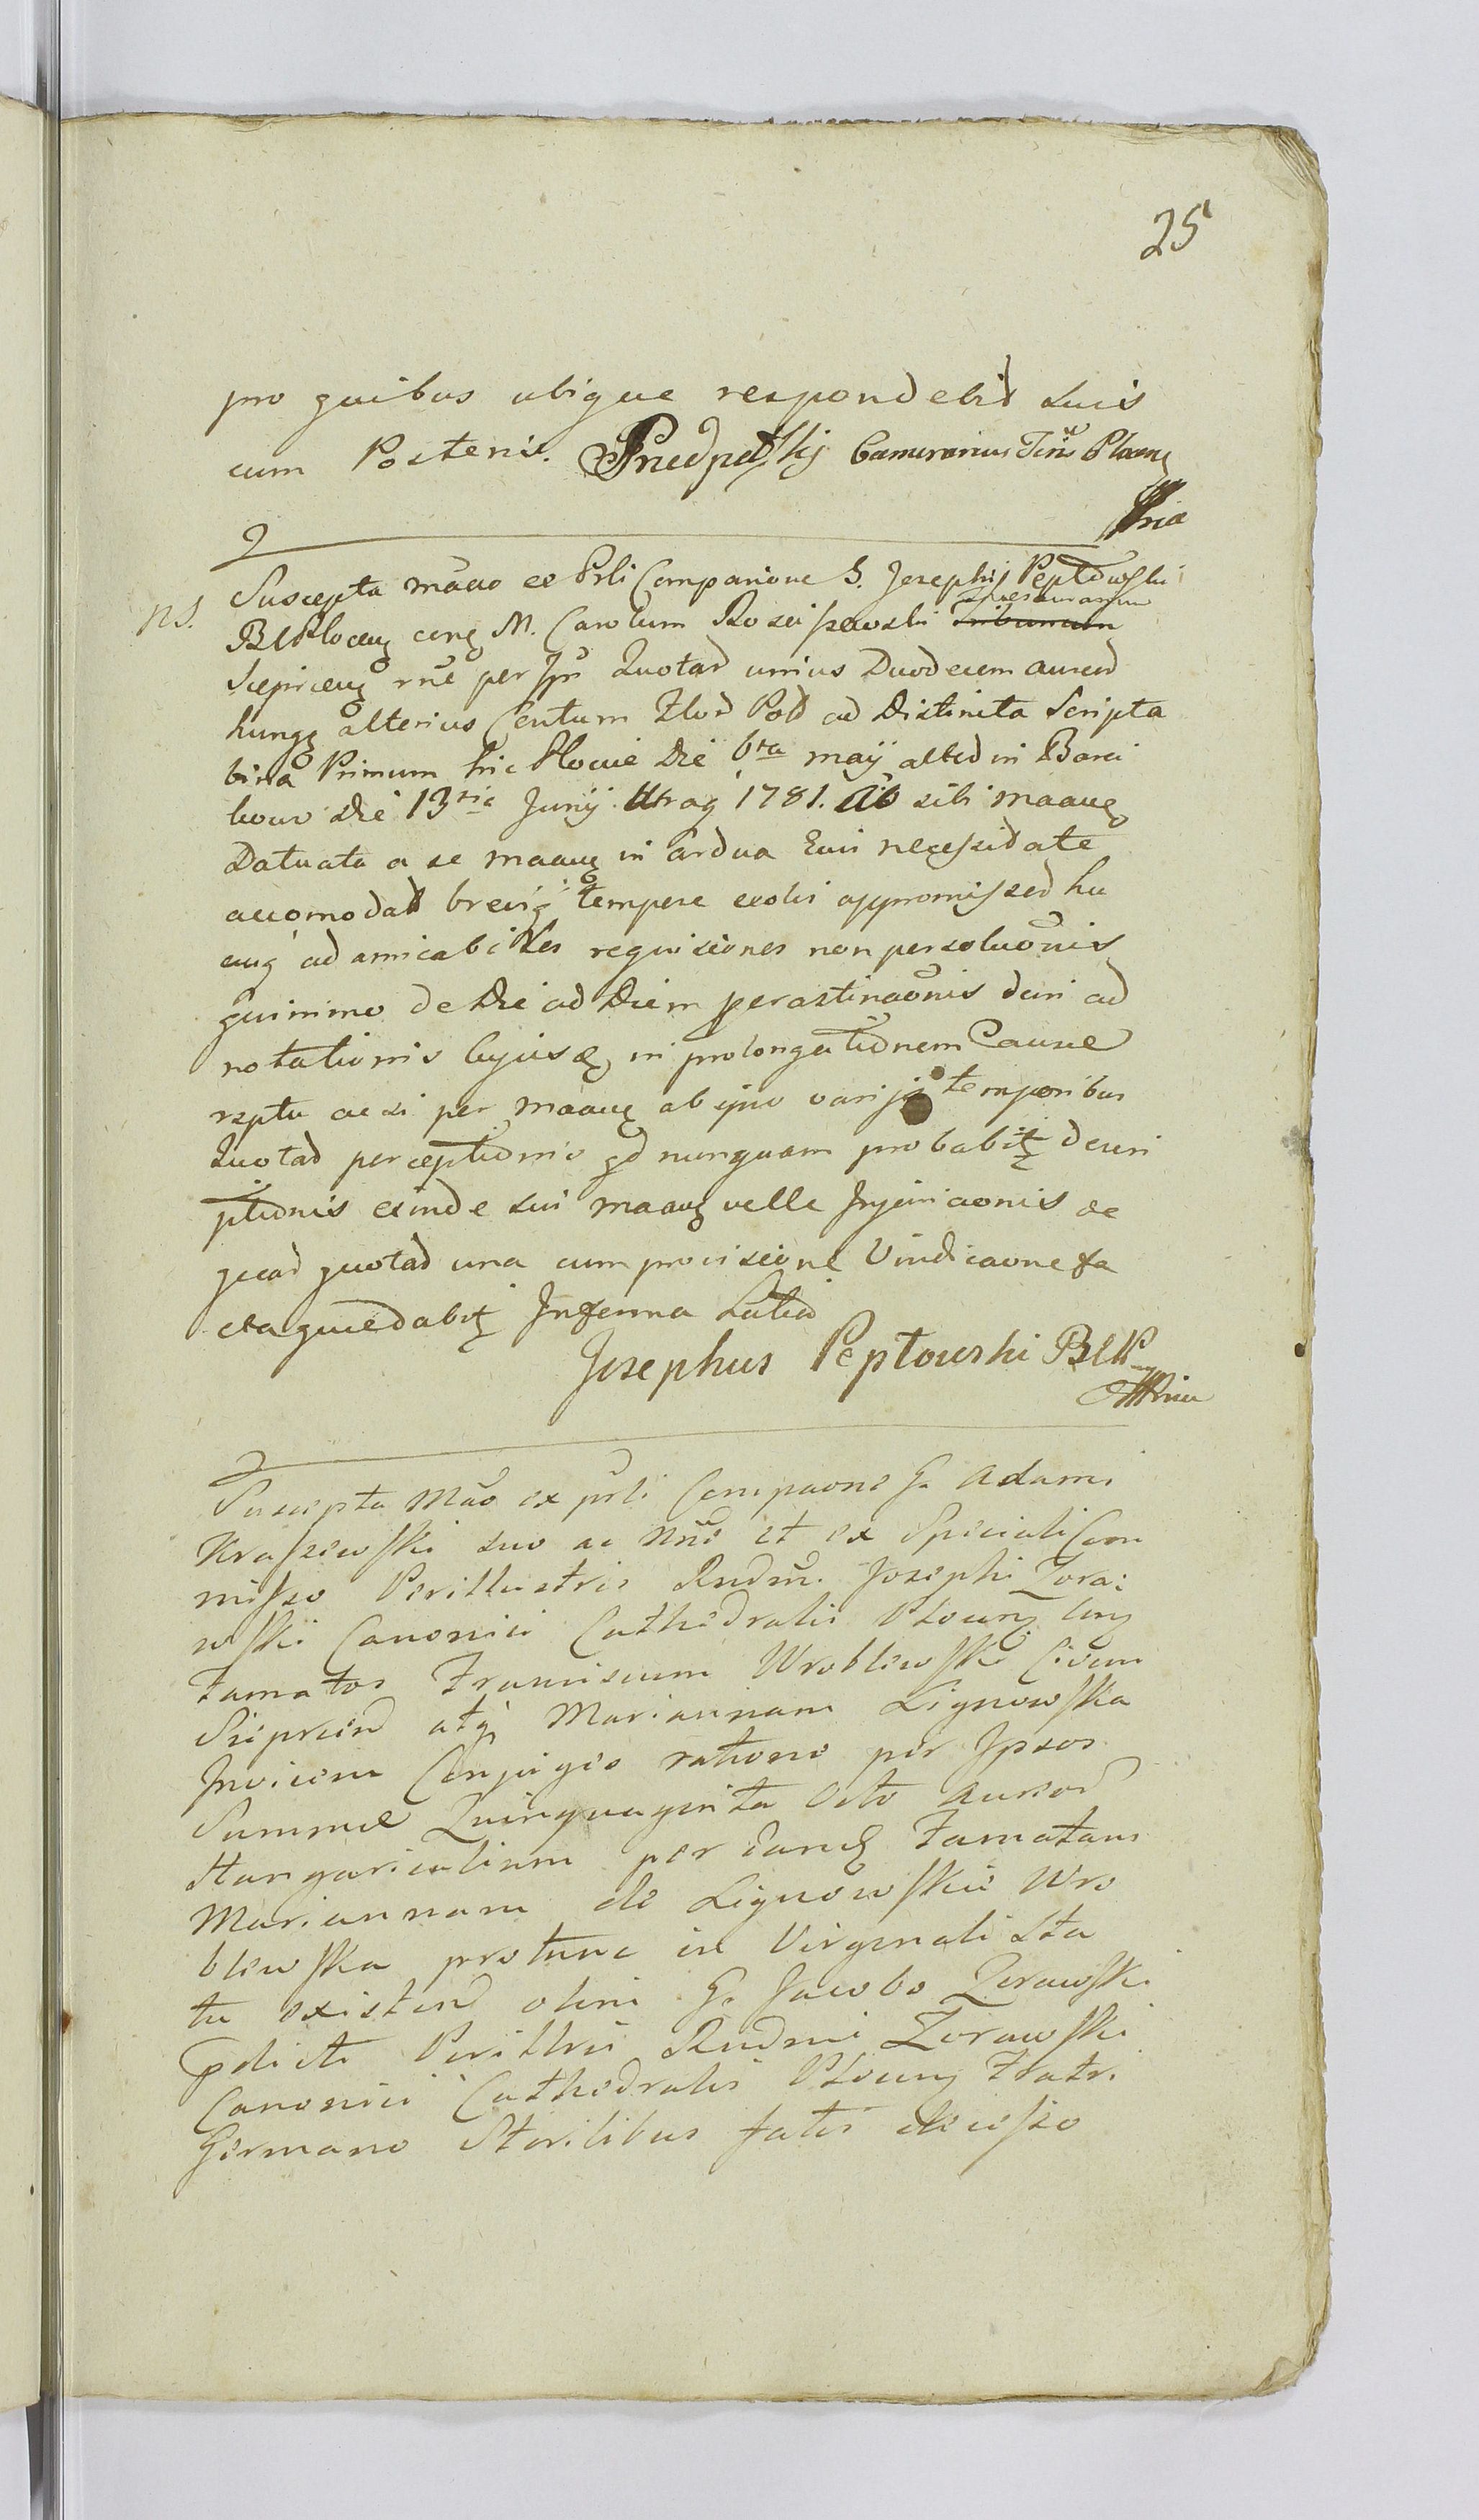 25
pro quibus ubique respondebit suis
cum Posteris. Camerarius Tris Plocens
mria
Suscepta mãao ex Prli Comparione G. Josephi Peptowski
ns. BCPlocens cons M. Carolum Rosciszewski Tribunum
Thesaurarium
Sieprcens rne per Ipm Quotar unius Duodecem aureor
hungq alterius Centum Zlor Pol ad Distincta Scripta
bina Primum hic Plociae Die 6ta maij alted in Barci
kowo die 13tia Junij utraq 1781. Ao sibi maanq
Datuata a se maanq in ardua Eius necessitate
accomodat breviq tempere exolvi appromissed hu
cuq ad amicabiles requisiones non persoluonis
quinimo de Die ad Diem perastinaonis dari ad
notationis hujusq in prolongationem Causae
rsptu ac si per maanq ab ipso varijs temporibus
Quotad perceptionis qd nunquam probabitq deuri
ptionis exinde sui maanq velle Injuriaonis ae
quotad una cum provisione Vindicaone fa
ctaquedabitq Inferina Latia
Josephus Peptowski BCP
mria
Suscepta Mão ex prli Compaone G. Adami
Kraszewski suo ac Nne et ex Speciali Com
misso Perillustris Rndm. Josephi Zora:
wski Canonici Cathedralis Plocens Cons
Famatos Franciscum Wroblewski Civem
Sieprcen atq Mariannam Lignowska
Invicem Conjuges ratione per Ipsos
Summae Quinquaginta Octo Aureor
Hungaricalium per eandq Famatam
Mariannam de Lignowskie Wro
blewska protunc in Virginali Sta
tu existend olim G. Jacobo Zorawski
pdicti Perillris Rndmi Zorawski
Canonici Cathedralis Plocens Fratri
Germano Sterilibus fatis decesso